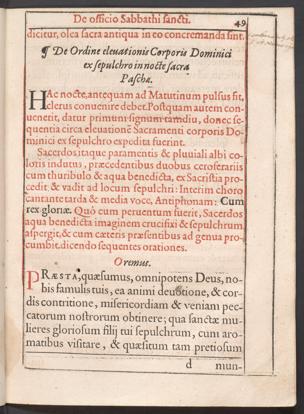 De officio Sabbathi sancti. 49
dicitur, olea sacra antiqua in eo concremanda sint.
¶ De Ordine eleuationis Corporis Dominici
ex sepulchro in nocte sacra
Paschæ.
HAc nocte, antequam ad Matutinum pulsus fit,
clerus conuenire debet. Postquam autem con-
uenerit, datur primum signum tamdiu, donec se-
quentia circa eleuationē Sacramenti corporis Do-
minici ex sepulchro expedita fuerint.
Sacerdos itaque paramentis & pluuiali albi co-
loris indutus, præcedentibus duobus ceroferariis
cum thuribulo & aqua benedicta, ex Sacristia pro-
cedit & vadit ad locum sepulchri: Interim choro
cantante tarda & media voce, Antiphonam: Cum
rex gloriæ. Quò cum peruentum fuerit, Sacerdos
aqua benedicta imaginem crucifixi & sepulchrum
aspergit, & cum cæteris præsentibus ad genua pro-
cumbit, dicendo sequentes orationes.
Oremus.
PRÆSTA, quæsumus, omnipotens Deus, no-
bis famulis tuis, ea animi deuotione, & cor-
dis contritione, misericordiam & veniam pec-
catorum nostrorum obtinere; qua sanctæ mu-
lieres gloriosum filij tui sepulchrum, cum aro-
matibus visitare, & quæsitum tam pretiosum
d mun-